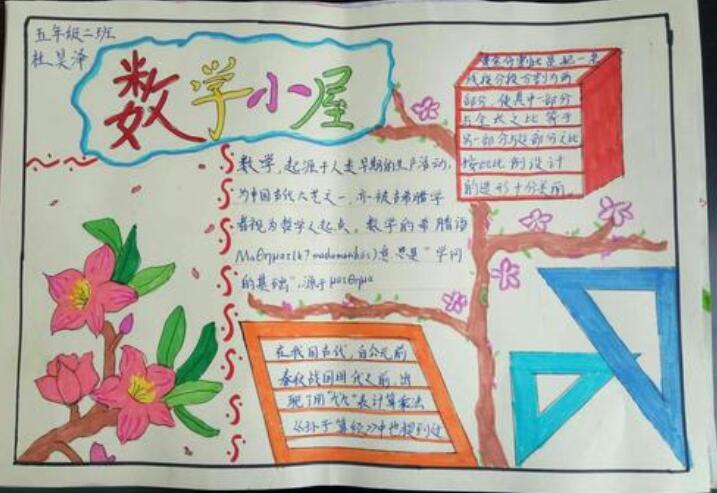 五年级二班
杜昊泽
数学小屋
黄金分割比是把一条
线段分段分割为两
部分，使其中一部分
与全长之比等于
另一部分与这部分之比
按此比例设计
的造形十分美丽。
数学，起源于人类早期的生产活动，
为中国古代六艺之一，亦被古希腊学
者视为哲学之起点。数学的希腊语
意思是"学问
的基础"，源于μαθημα
在我国古代，自公元前
春秋战国时代之前，出
现了用"九九"表计算乘法
《孙子算经》中也提到过